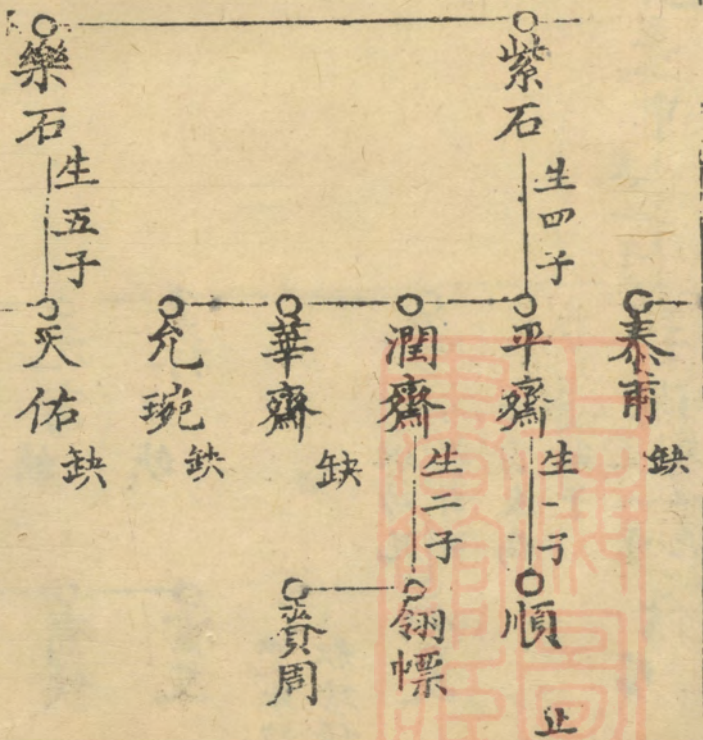 紫石
生四子
樂石
生五子
泰甫
缺
平齋
生一子
潤齋
生二子
華齋
缺
允琬
缺
天佑
缺
順
止
翎幖
賚周